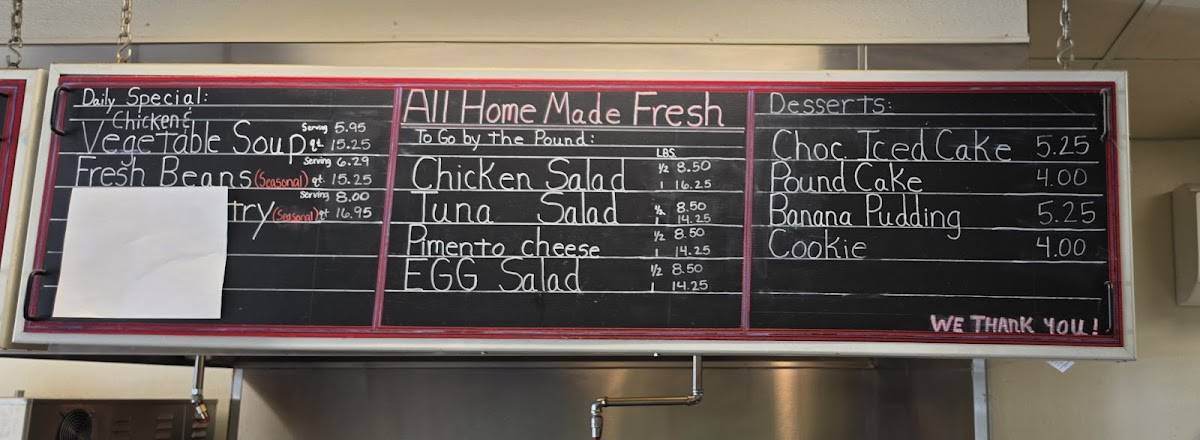 Daily Special:
Chicken &
Vegetable Soup Serving 5.95
qt 15.25
Fresh Beans (Seasonal) Serving 6.29
qt. 15.25
try (Seasonal) Serving 8.00
qt 16.95
All Home Made Fresh
To Go by the Pound:
LBS
Chicken Salad 1/2 8.50
1 16.25
Tuna Salad 1/2 8.50
1 14.25
Pimento cheese 1/2 8.50
1 14.25
EGG Salad 1/2 8.50
1 14.25
Desserts:
Choc Iced Cake 5.25
Pound Cake 4.00
Banana Pudding 5.25
Cookie 4.00
WE THANK YOU!